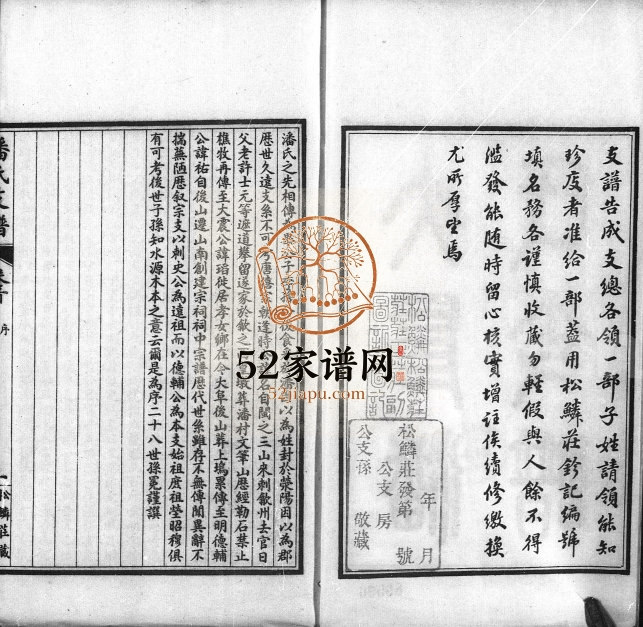 支譜告成支總各領一部子姓請領能知
珍度者准給一部蓋用松鱗莊鈐記編號
填名務各謹慎收藏勿輕假與人餘不得
濫發能随時留心核實增註俟續修繳換
尤所厚望焉
年 月
松鱗莊發第 號
公支 房
公支孫 敬藏
潘氏之先相傳為 食 以為姓封於滎陽因以為郡
歷世久遠支系不可考唐 逢時 名自閩之三山來刺歙州去官日
父老許士元等遮道攀留遂家於歙之 葬潘村文筆山歷經勒石禁止
樵牧再傳至大震公諱瑫徙居孝女鄉在今大阜後山葬上塢累傳至明德輔
公諱祐自後山遷山南創建宗祠祠中宗譜歷代世系雖存不無傳聞異辭不
揣蕪陋歷叙宗支以刺史公為遠祖而以德輔公為本支始祖庶祖塋昭穆俱
有可考後世子孫知水源木本之意云爾是為序二十八世孫冕謹撰
潘氏支譜
序
一
松鱗莊藏
52家谱网
52jiapu.com